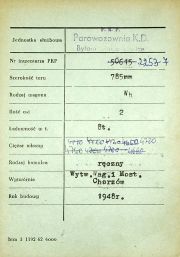 Jednostka służbowa
P.K.P.
Parowozownia K.D.
Nr inwentarza PKP 50645 2253-7
Szerokość toru 785mm
Rodzaj wagonu Wh
Ilość osi 2
Ładowność w t. 8t.
Ciężar własny
Rodzaj hamulca ręczny
Wytwórnia Wytw.Wag.i Most. Chorzów
Rok budowy 1948r.